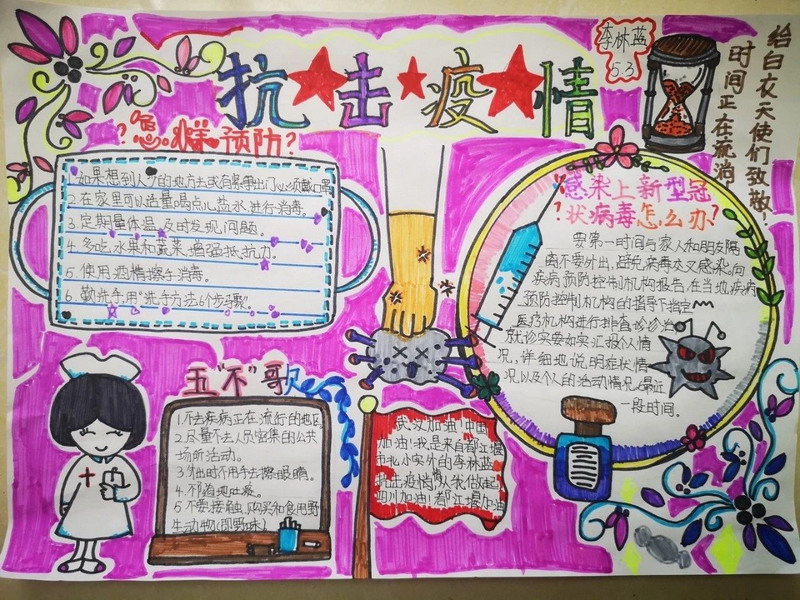 抗击疫情
李林蓝
5.3
给白衣天使们致敬!
时间正在流消
?怎样预防?
1.如果想到人少的地方去或有紧事出门必须戴口罩
2.在家里可以适量喝点儿盐水,进行消毒。
3.定期量体温,及时发现问题。
4.多吃水果和蔬菜,增强抵抗力。
5.使用酒精擦手消毒。
6.勤洗手,用"洗手方法6个步骤"。
感染上新型冠
状病毒怎么办?
要第一时间与家人和朋友隔
离不要外出,避免病毒交叉感染,向
疾病预防控制机构报告,在当地疾病
预防控制机构的指导下指定
医疗机构进行排查诊治
就诊实要如实汇报个人情
况,详细地说明症状情
况以及个人的活动情况,最近
一段时间。
五"不"歌
1.不去疾病正在流行的地区
2.尽量不去人员密集的公共
场所活动。
3.外出时不用手去擦眼睛。
4.不随地吐痰。
5.不要接触,购买和食用野
生动物(即野味)
武汉加油!中国
加油!我是来自都江堰
市北小实外的李林蓝
抗击疫情,从我做起
四川加油!都江堰加油